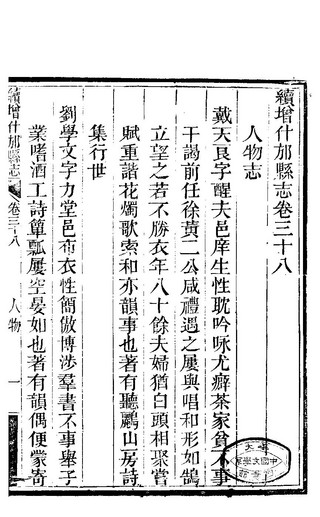 續增什邡縣志卷三十八
人物志
戴天良字醒夫邑庠生性耽吟咏尤癖茶家貧不事
干謁前任徐黃二公咸禮遇之屢與唱和形如鵠
立望之若不勝衣年八十餘夫婦猶白頭相聚嘗
賦重諧花燭歌索和亦韻事也著有聽鸝山房詩
集行世
劉學文字力堂邑布衣性簡傲博涉羣書不事舉子
業嗜酒工詩簞瓢屢空晏如也著有韻偶便蒙寄
續增什邡縣志
卷三十八
人物
一